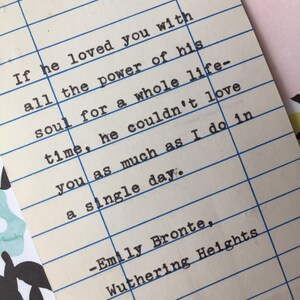 If he loved you with
all the power of his
soul for a whole life-
time, he couldn't love
you as much as I do in
a single day.
-Emily Bronte,
Wuthering Heights